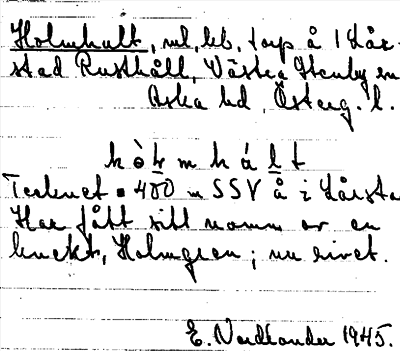 Holmhult, ml, bb, torp å 1 Lår-
stad Rusthåll, Västra Stenby sn
Aska hd, Österg. l.
hò̀lmhált
Tecknet 400 m SSV å i Lårsta
Har fått sitt namn av en
knekt, Holmgren; nu rivet.
E. Nordlander 1945.